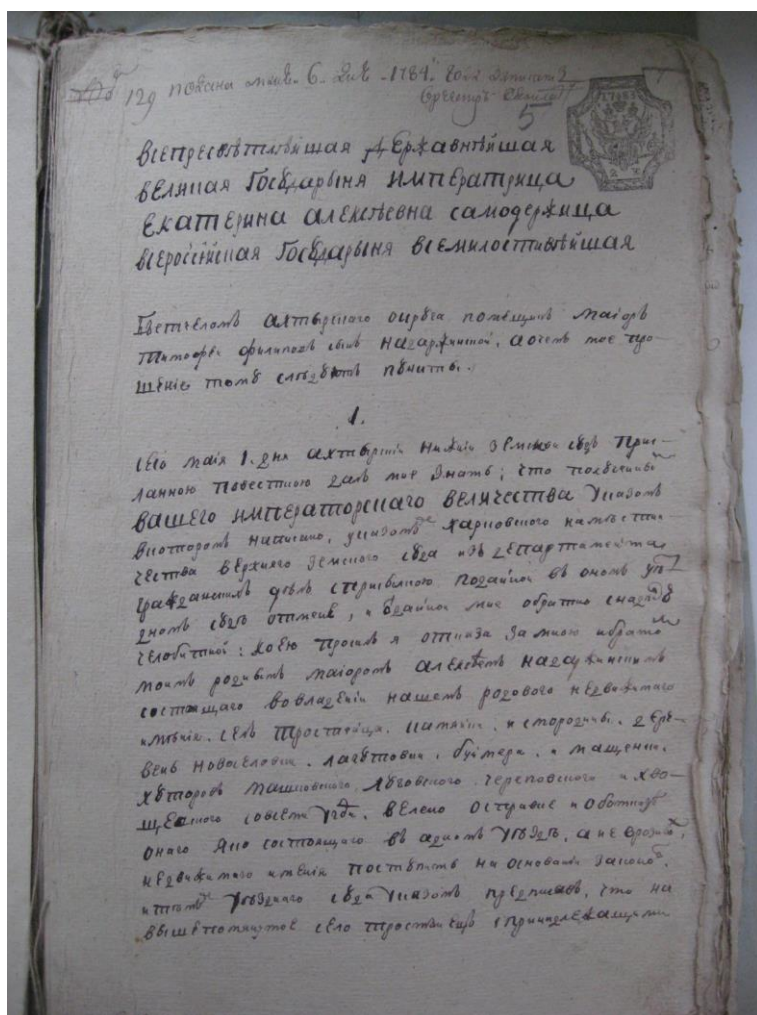 129 подана маия 6 дня 1784 года записать
5
всепресветлейшая державнейшая
великая государыня императрица
екатерина алексѣевна самодержица
всеросiйская государыня всемилостивѣйшая
бьетчеломъ ахтырского округа помѣщикъ маiоръ
тимофей филиповъ сынъ надаржинской, а очемъ мое про-
шенiе тому слѣдуютъ пункты.
1.
сего маiя 1. дня ахтырскiй нижнiй земской судъ прис-
ланною повесткою далъ мне знать; что полученнымъ
вашего императорского величества указомъ
вкоторомъ написано, указомъ харковского намѣстни
чества верхняго земского суда изъ департамента
гражданскихъ дѣлъ
челобитной: коею просилъ я отказа за мною ибратомъ
моимъ роднымъ маiоромъ алексѣемъ надаржинскимъ
состоящаго вовладѣнiи нашемъ родового недвижимаго
имѣнiя. селъ тростянца. и смородины. дере-
вень новоселовки. лагутовки. буймера. и мащенки.
хуторовъ машковского. луговского. череповского и хво-
щеваго совсеми угоди. велено
онаго яко состоящаго въ адномъ уѣздѣ, а не врозныхъ,
недвижимаго имѣнiя поступить на основанiи законовъ.
уѣзднаго суда указомъ предписавъ, что на
вышепомянутое село тростянецъ спринадлежащими